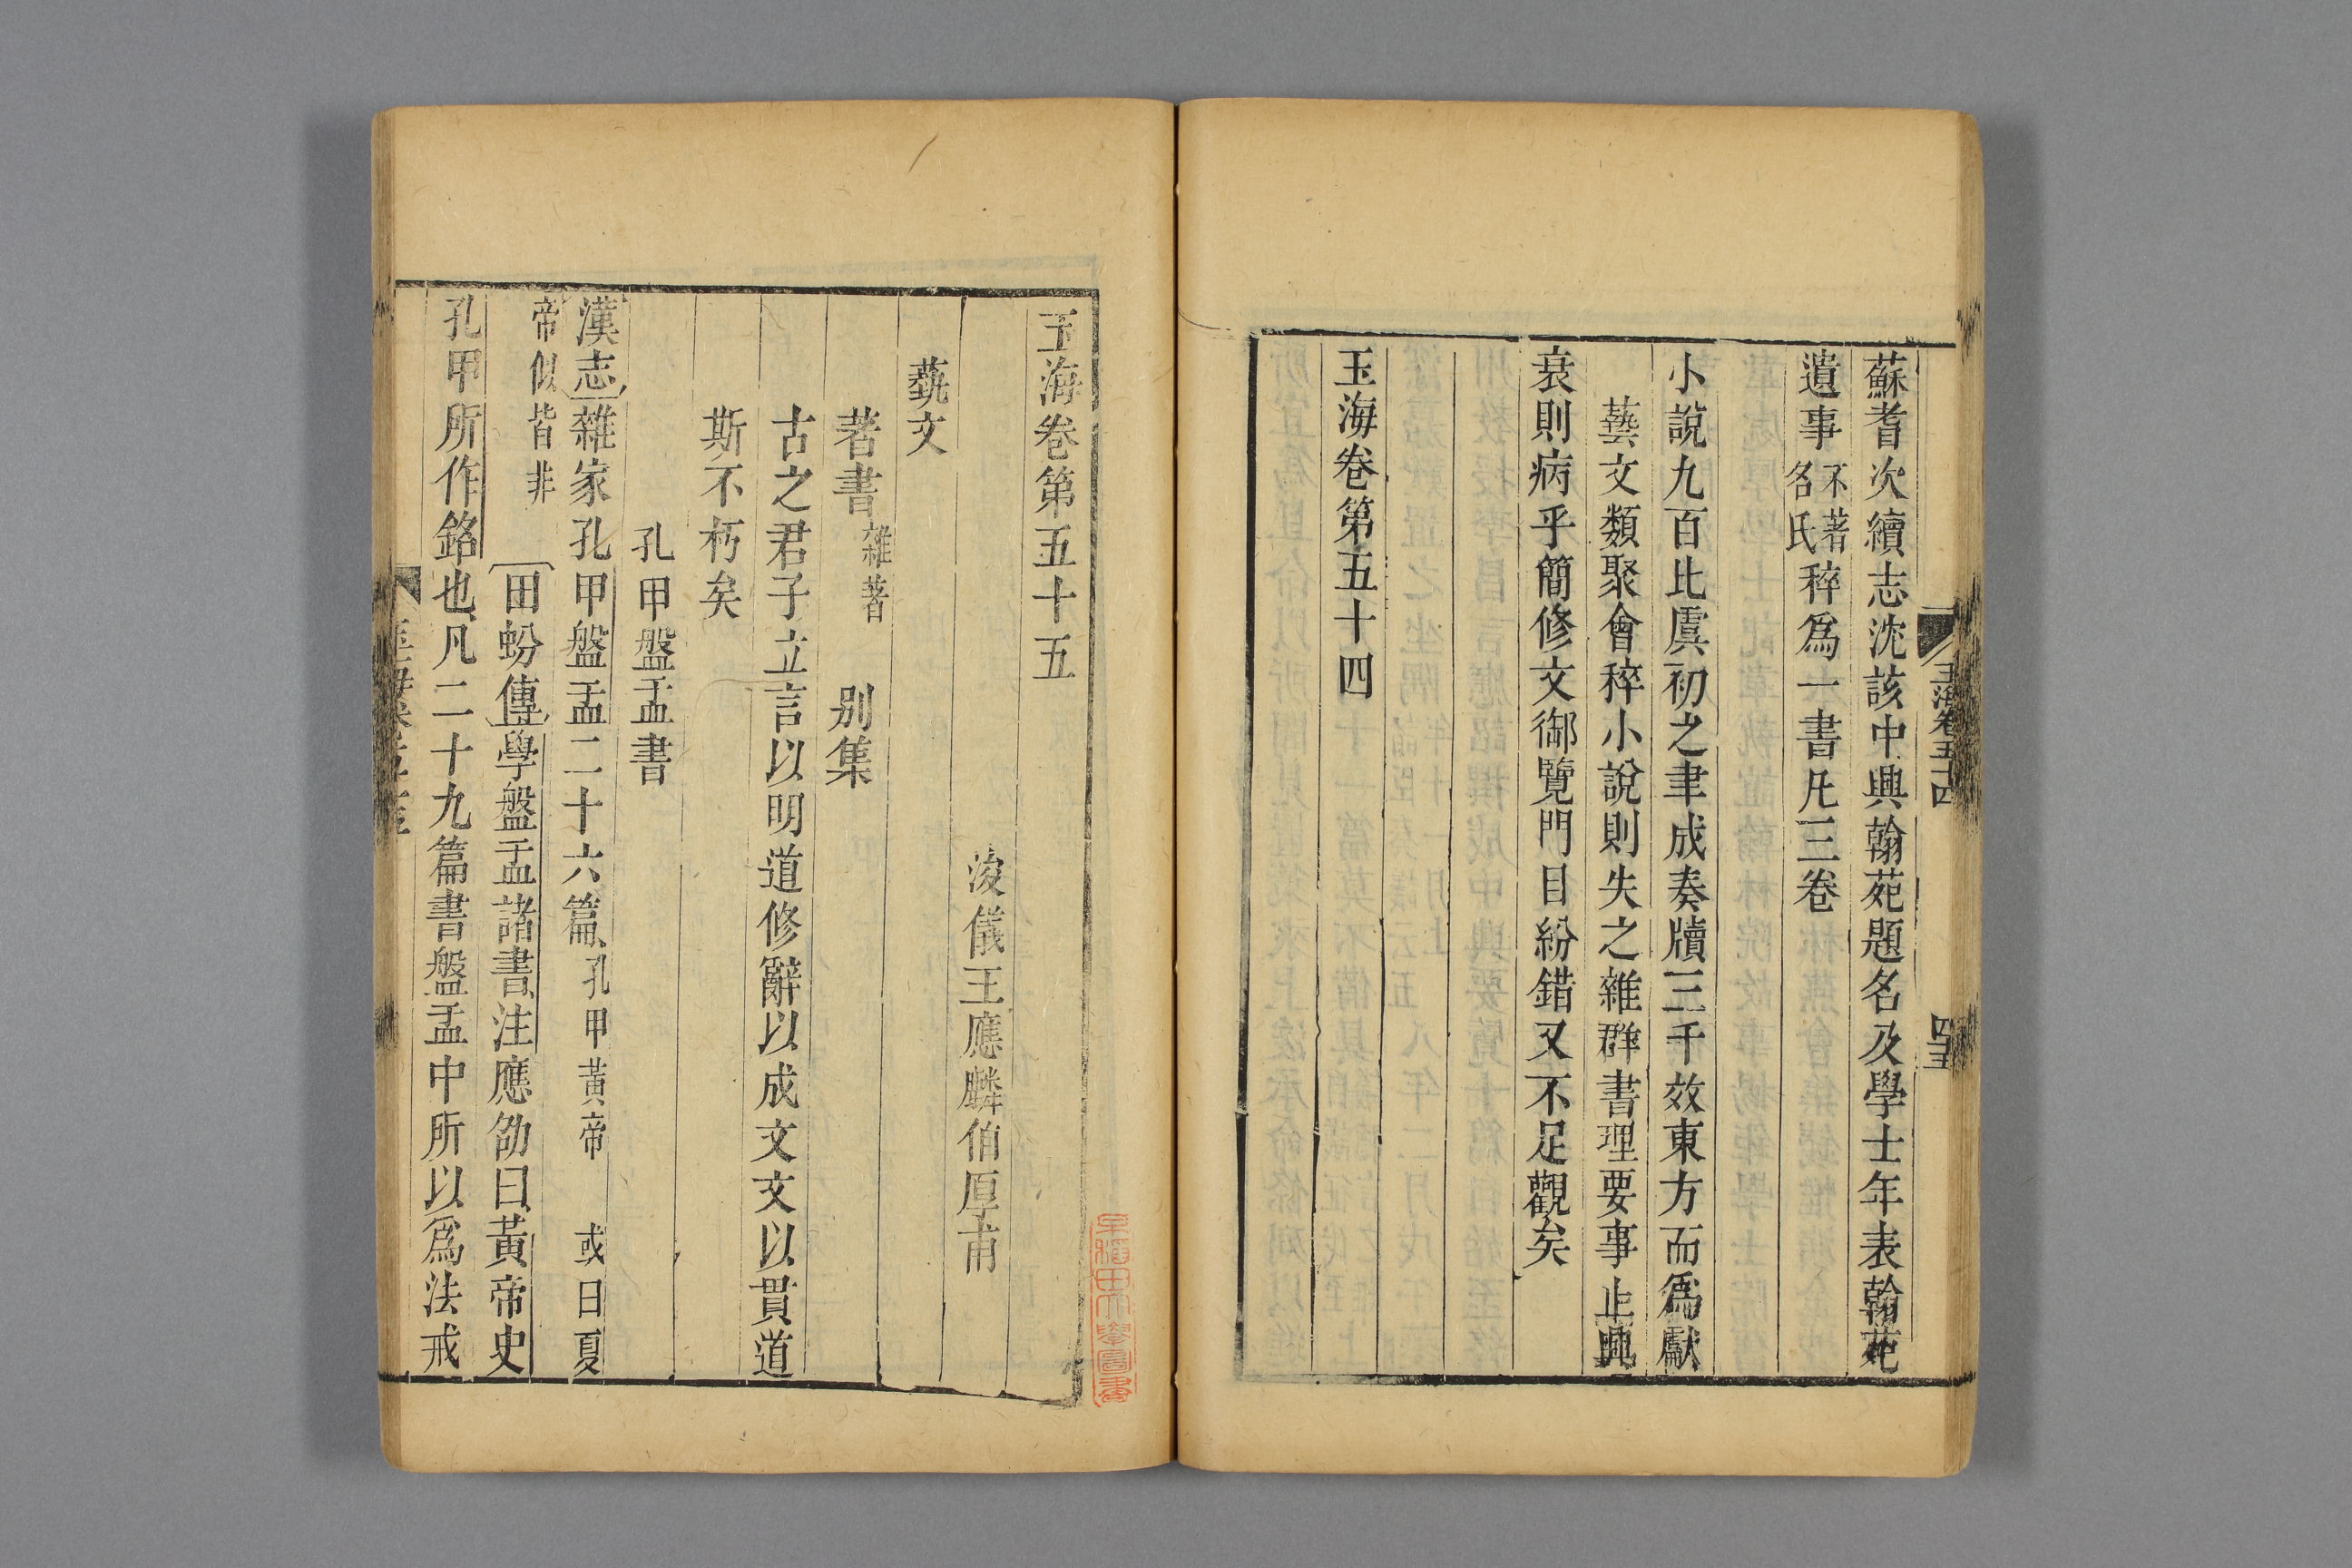 蘇耆次續志沈該中興翰苑題名及學士年表翰苑
遺事不著名氏稡爲一書凡三卷
小說九百比虞初之聿成奏牘三千效東方而爲獻
藝文類聚會稡小說則失之雜群書理要事止興
衰則病乎簡修文御覽門目紛錯又不足觀矣
玉海卷第五十四
玉海卷第五十五
浚儀王應麟伯厚甫
藝文
著書雜著 別集
古之君子立言以明道修辭以成文文以貫道
斯不朽矣
孔甲盤盂書
漢志雜家孔甲盤盂二十六篇孔甲黃帝 或曰夏
帝似皆非 田蚡傳學盤盂諸書注應劭曰黃帝史
孔甲所作銘也凡二十九篇書盤盂中所以爲法戒
玉海卷五十四
早稻田大學圖書